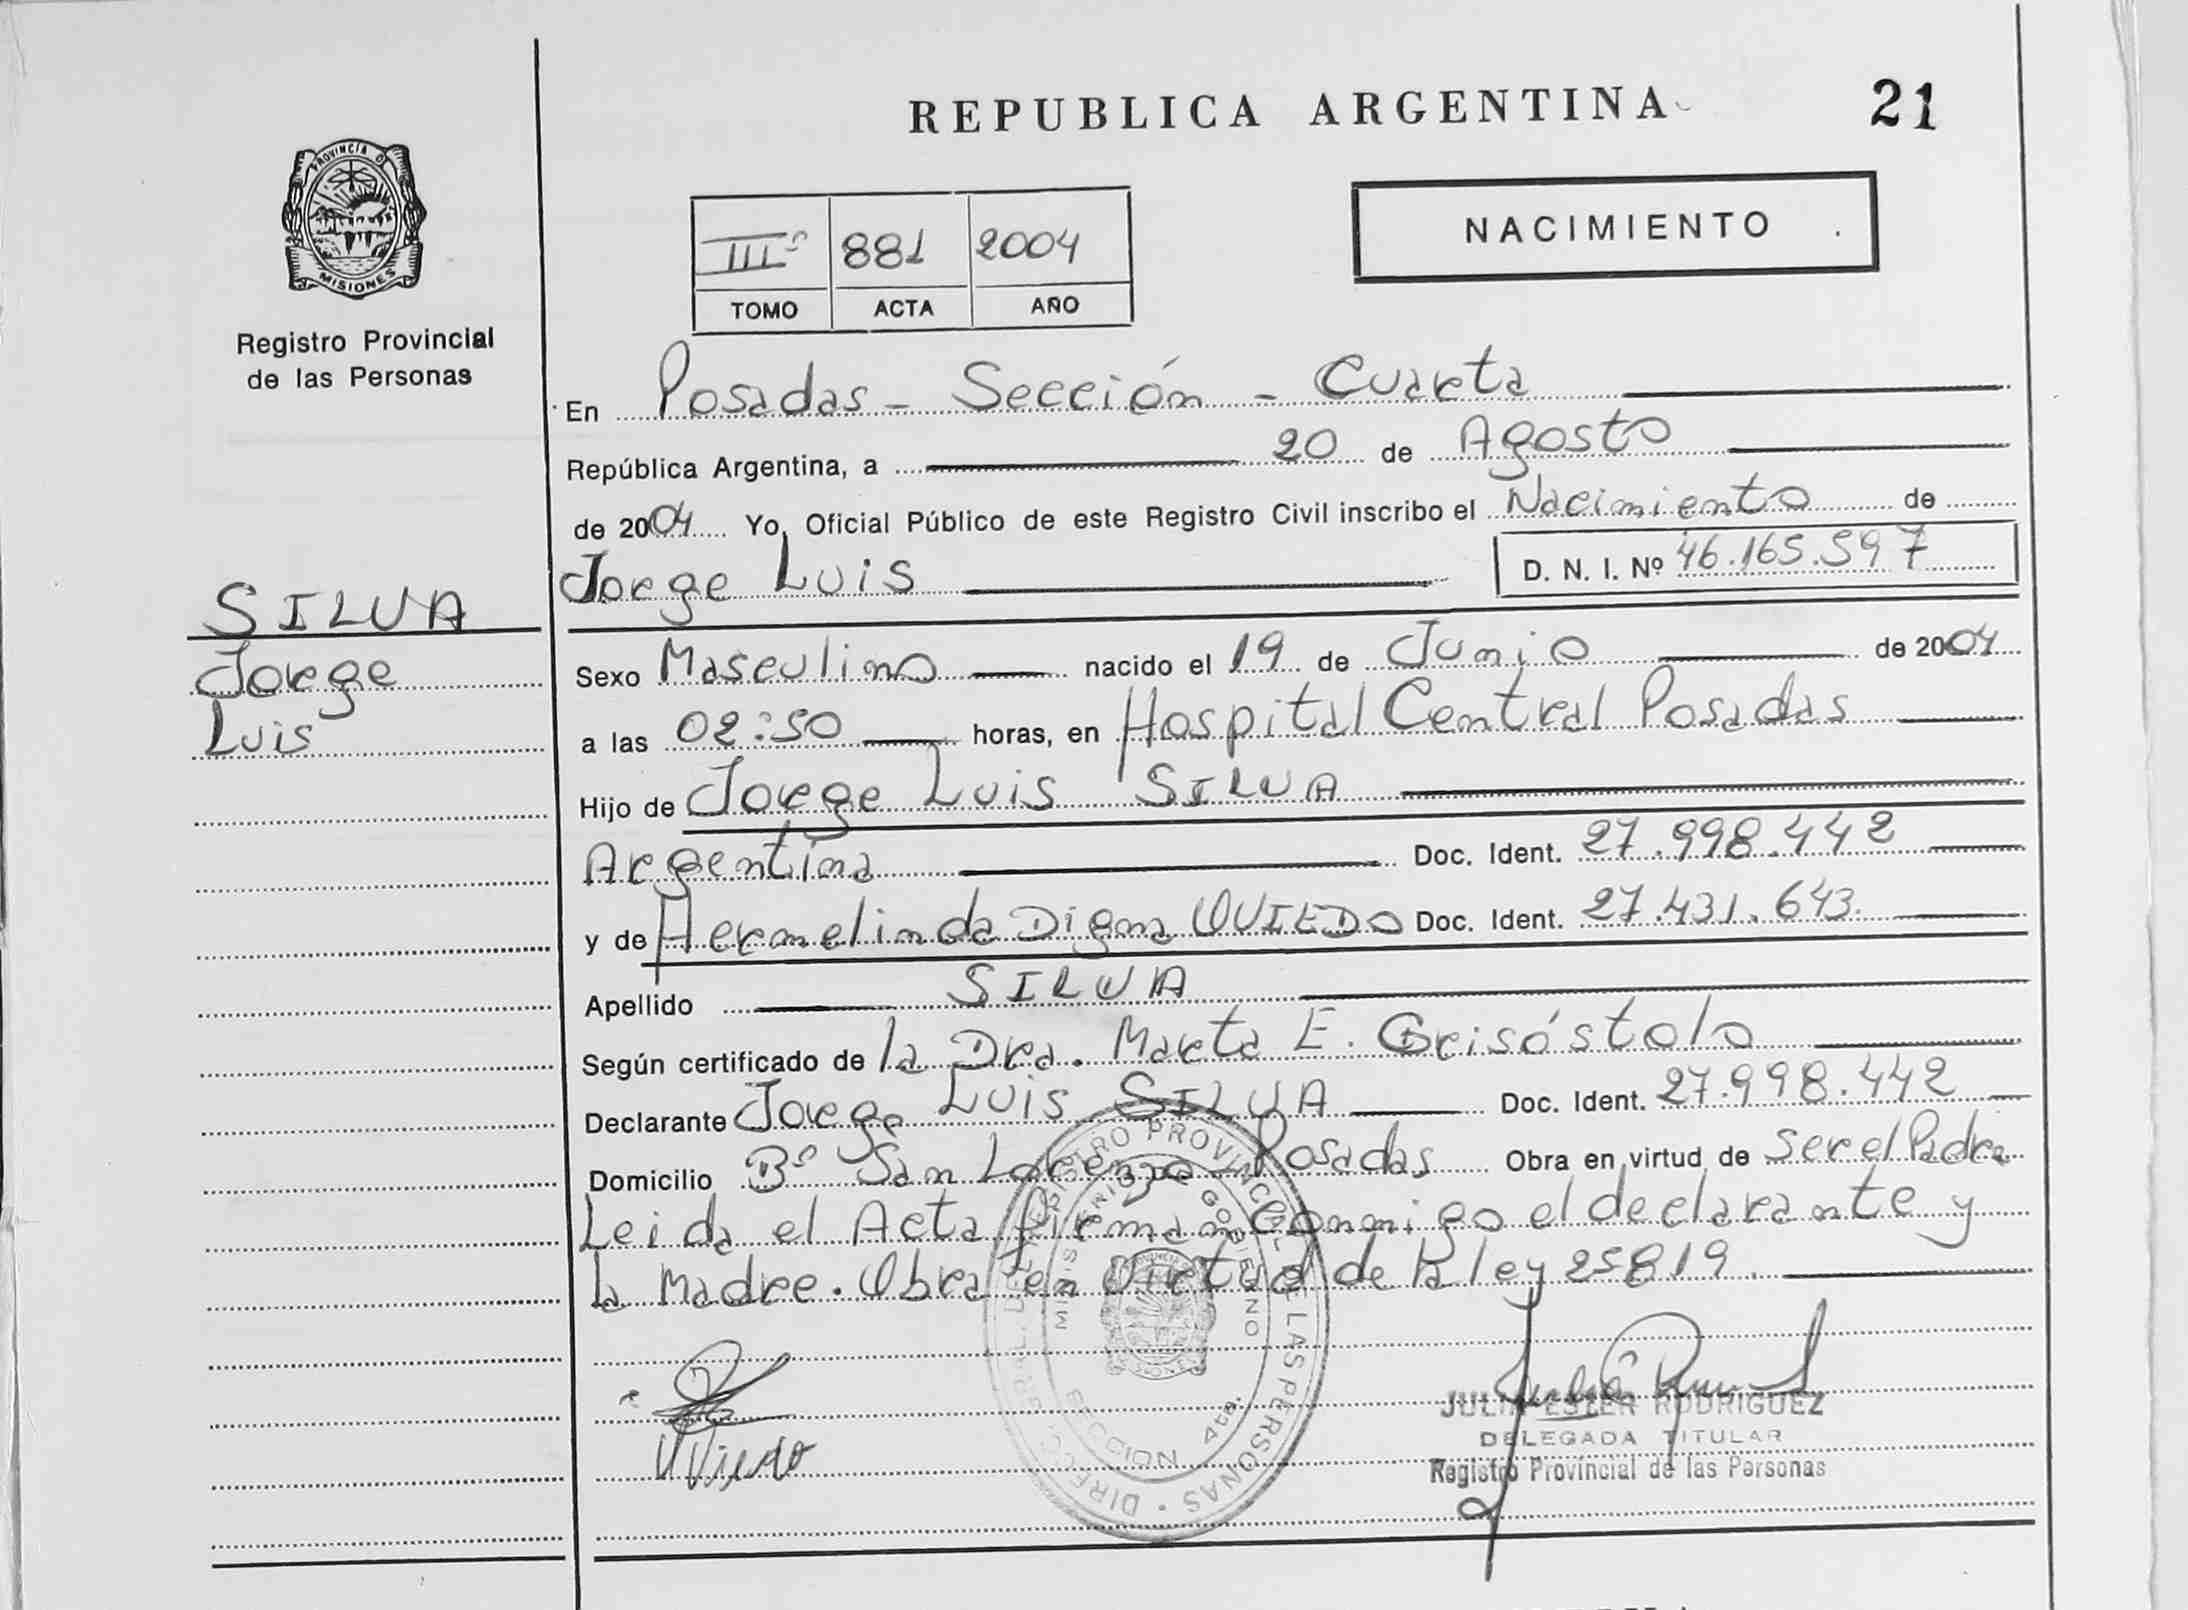 REPUBLICA ARGENTINA
21
PROVINCIA D
MISIONES
Registro Provincial
de las Personas
NACIMIENTO
IIIº 881 2004
TOMO ACTA AÑO
En Posadas - Sección - Cuarta
República Argentina, a 20 de Agosto
de 2004 Yo, Oficial Público de este Registro Civil inscribo el Nacimiento de
Jorge Luis D. N. I. Nº 46.165.597
SILVA
Jorge
Luis
Sexo Masculino nacido el 19 de Junio de 2004
a las 02:50 horas, en Hospital Central Posadas
Hijo de Jorge Luis SILVA
Argentina Doc. Ident. 27.998.442
y de Hermelinda Digna OVIEDO Doc. Ident. 27.431.643.
Apellido SILVA
Según certificado de la Dra. Marta E. Grisóstolo
Declarante Jorge Luis SILVA Doc. Ident. 27.998.442
Domicilio Bº San Lorenzo - Posadas Obra en virtud de Ser el Padre
Leida el Acta firman conmigo el declarante y
la Madre. Obra en Virtud de la ley 25819.
REGISTRO PROVINCIAL DE LAS PERSONAS
MINISTERIO DE GOBIERNO
SECCION 4ta.
Oviedo
JULIA ESTER RODRIGUEZ
DELEGADA TITULAR
Registro Provincial de las Personas